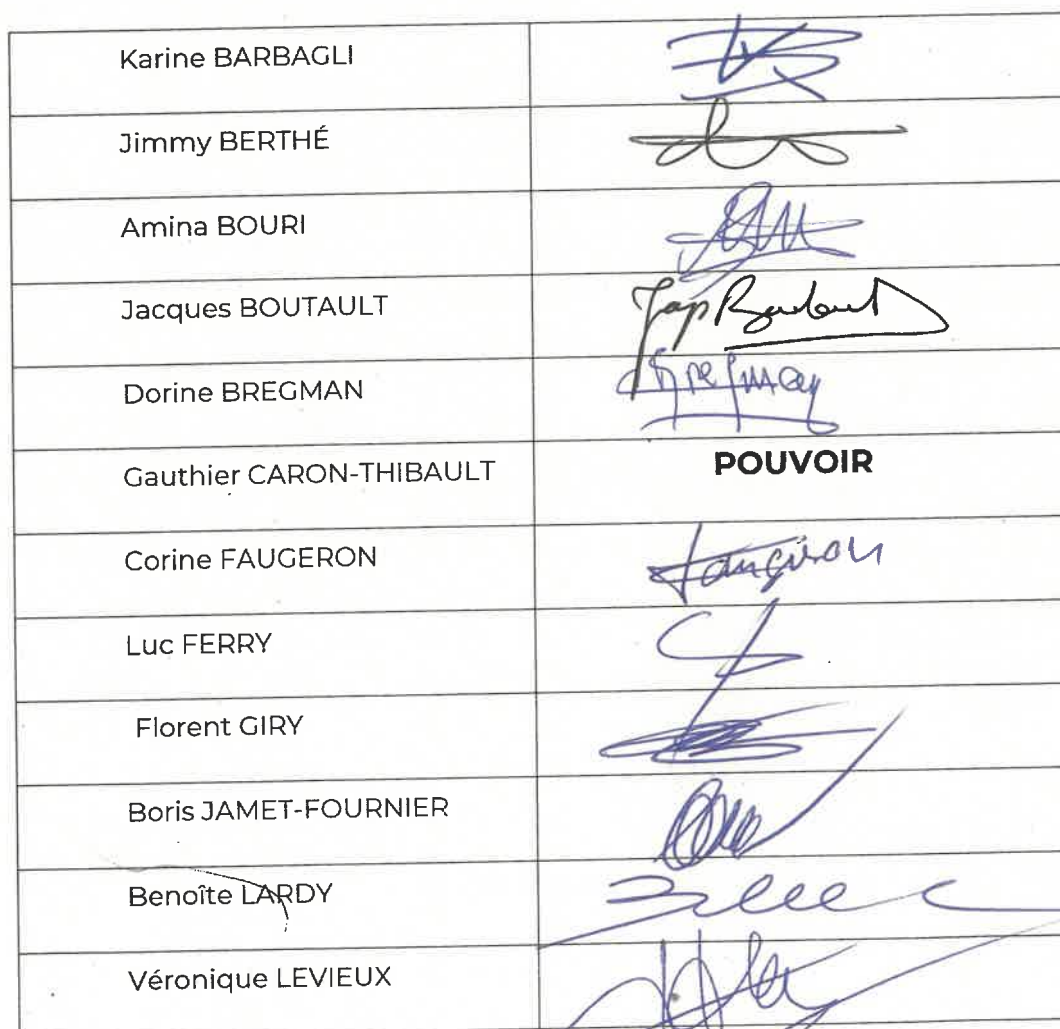 Karine BARBAGLI
Jimmy BERTHÉ
Amina BOURI
Jacques BOUTAULT
Jap Boutault
Dorine BREGMAN
Bregman
Gauthier CARON-THIBAULT POUVOIR
Corine FAUGERON
Faugeron
Luc FERRY
Florent GIRY
Boris JAMET-FOURNIER
Benoîte LARDY
Véronique LEVIEUX